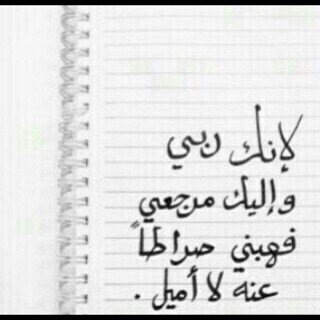 لإنك ربي
وإليك مرجعي
فهبني صراطاً
عنه لا أميل .